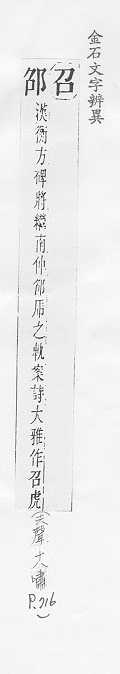 金石文字辨異
召
邵 漢衡方碑將繼南仲邵虎之軌案詩大雅作召虎(去聲大嘯
P.716)